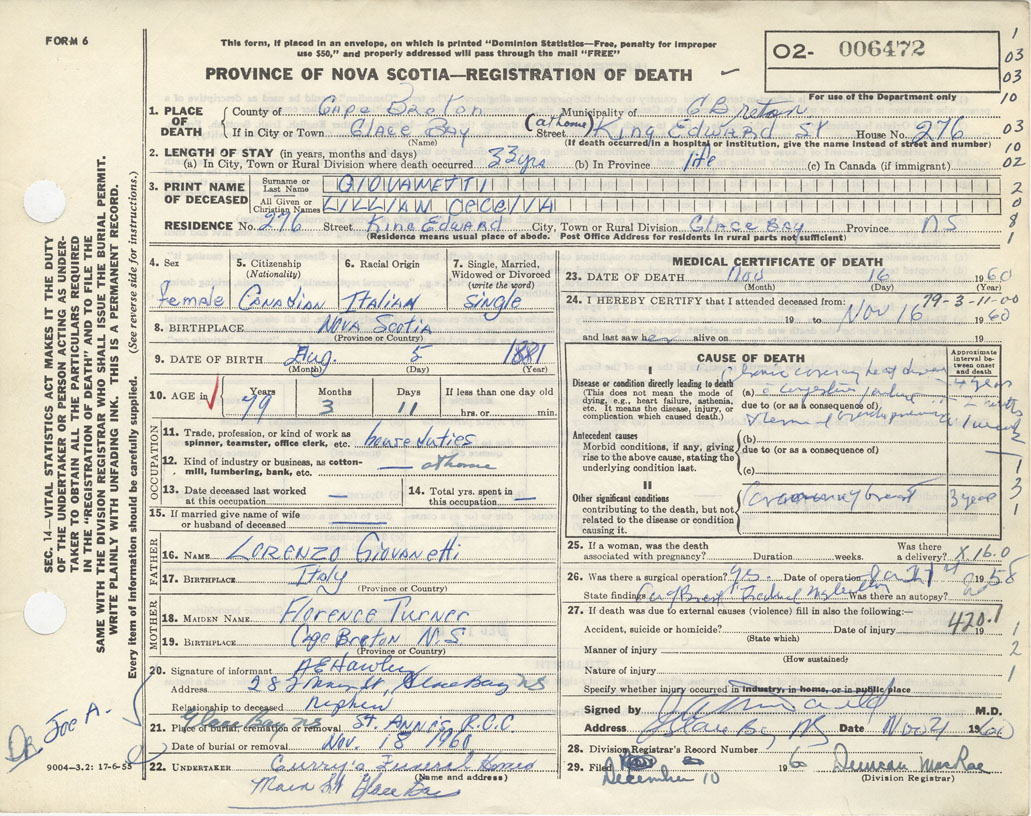 FORM 6
This form, if placed in an envelope, on which is printed "Dominion Statistics—Free, penalty for improper
use $50," and properly addressed will pass through the mail "FREE"
PROVINCE OF NOVA SCOTIA—REGISTRATION OF DEATH
02- 006472
For use of the Department only
1
03
03
10
03
10
02
2
0
8
1
1. PLACE OF DEATH
County of Cape Breton Municipality of C Breton
If in City or Town Glace Bay (at home) Street King Edward St House No. 276
(Name) (If death occurred in a hospital or institution, give the name instead of street and number)
2. LENGTH OF STAY (in years, months and days)
(a) In City, Town or Rural Division where death occurred 33 yrs (b) In Province life (c) In Canada (if immigrant)
3. PRINT NAME OF DECEASED
Surname or Last Name GIOVANETTI
All Given or Christian Names LILLIAN CECELIA
RESIDENCE No. 276 Street King Edward City, Town or Rural Division Glace Bay Province NS
(Residence means usual place of abode. Post Office Address for residents in rural parts not sufficient)
4. Sex
female
5. Citizenship
(Nationality)
Canadian
6. Racial Origin
Italian
7. Single, Married,
Widowed or Divorced
(write the word)
single
8. BIRTHPLACE Nova Scotia
(Province or Country)
9. DATE OF BIRTH Aug. 5 1881
(Month) (Day) (Year)
10. AGE in
Years 79
Months 3
Days 11
If less than one day
hrs. or min.
OCCUPATION
11. Trade, profession, or kind of work as
spinner, teamster, office clerk, etc. house duties
12. Kind of industry or business, as cotton-
mill, lumbering, bank, etc. — at home
13. Date deceased last worked
at this occupation —
14. Total yrs. spent in
this occupation —
15. If married give name of wife
or husband of deceased —
FATHER
16. NAME Lorenzo Giovanetti
17. BIRTHPLACE Italy
(Province or Country)
MOTHER
18. MAIDEN NAME Florence Turner
19. BIRTHPLACE Cape Breton N.S
(Province or Country)
20. Signature of informant A E Hawley
Address Glace Bay NS
Relationship to deceased nephew
Glace Bay NS
21. Place of burial, cremation or removal St. Anne's R.C.C
Date of burial or removal Nov. 18 1960
22. UNDERTAKER Curry's Funeral Home
(Name and address)
Main St Glace Bay
MEDICAL CERTIFICATE OF DEATH
23. DATE OF DEATH Nov 16 1960
(Month) (Day) (Year)
24. I HEREBY CERTIFY that I attended deceased from: 79-3-11-00
19 to Nov 16 1960
and last saw her alive on 19
CAUSE OF DEATH
Approximate
interval be-
tween onset
and death
I
Disease or condition directly leading to death
(This does not mean the mode of
dying, e.g., heart failure, asthenia,
etc. It means the disease, injury, or
complication which caused death.)
(a)
due to (or as a consequence of)
Antecedent causes
Morbid conditions, if any, giving
rise to the above cause, stating the
underlying condition last.
(b)
due to (or as a consequence of)
(c)
II
Other significant conditions
contributing to the death, but not
related to the disease or condition
causing it.
3 years
2
1
3
1
25. If a woman, was the death
associated with pregnancy? Duration weeks. Was there
a delivery? X 16.0
26. Was there a surgical operation? yes. Date of operation 1958
State findings Was there an autopsy?
27. If death was due to external causes (violence) fill in also the following:—
420.1
Accident, suicide or homicide? Date of injury 19
(State which)
Manner of injury
(How sustained)
Nature of injury
Specify whether injury occurred in industry, in home, or in public place
1
2
1
Signed by M.D.
Address Glace Bay NS Date Nov 21 1960
28. Division Registrar's Record Number
29. Filed December 10 196 Duncan MacRae
(Division Registrar)
SEC. 14—VITAL STATISTICS ACT MAKES IT THE DUTY
OF THE UNDERTAKER OR PERSON ACTING AS UNDER-
TAKER TO OBTAIN ALL THE PARTICULARS REQUIRED
IN THE "REGISTRATION OF DEATH" AND TO FILE THE
SAME WITH THE DIVISION REGISTRAR WHO SHALL ISSUE THE BURIAL PERMIT.
WRITE PLAINLY WITH UNFADING INK. THIS IS A PERMANENT RECORD.
Every item of information should be carefully supplied. (See reverse side for instructions.)
Dr. Joe A-
9004-3.2: 17-6-55